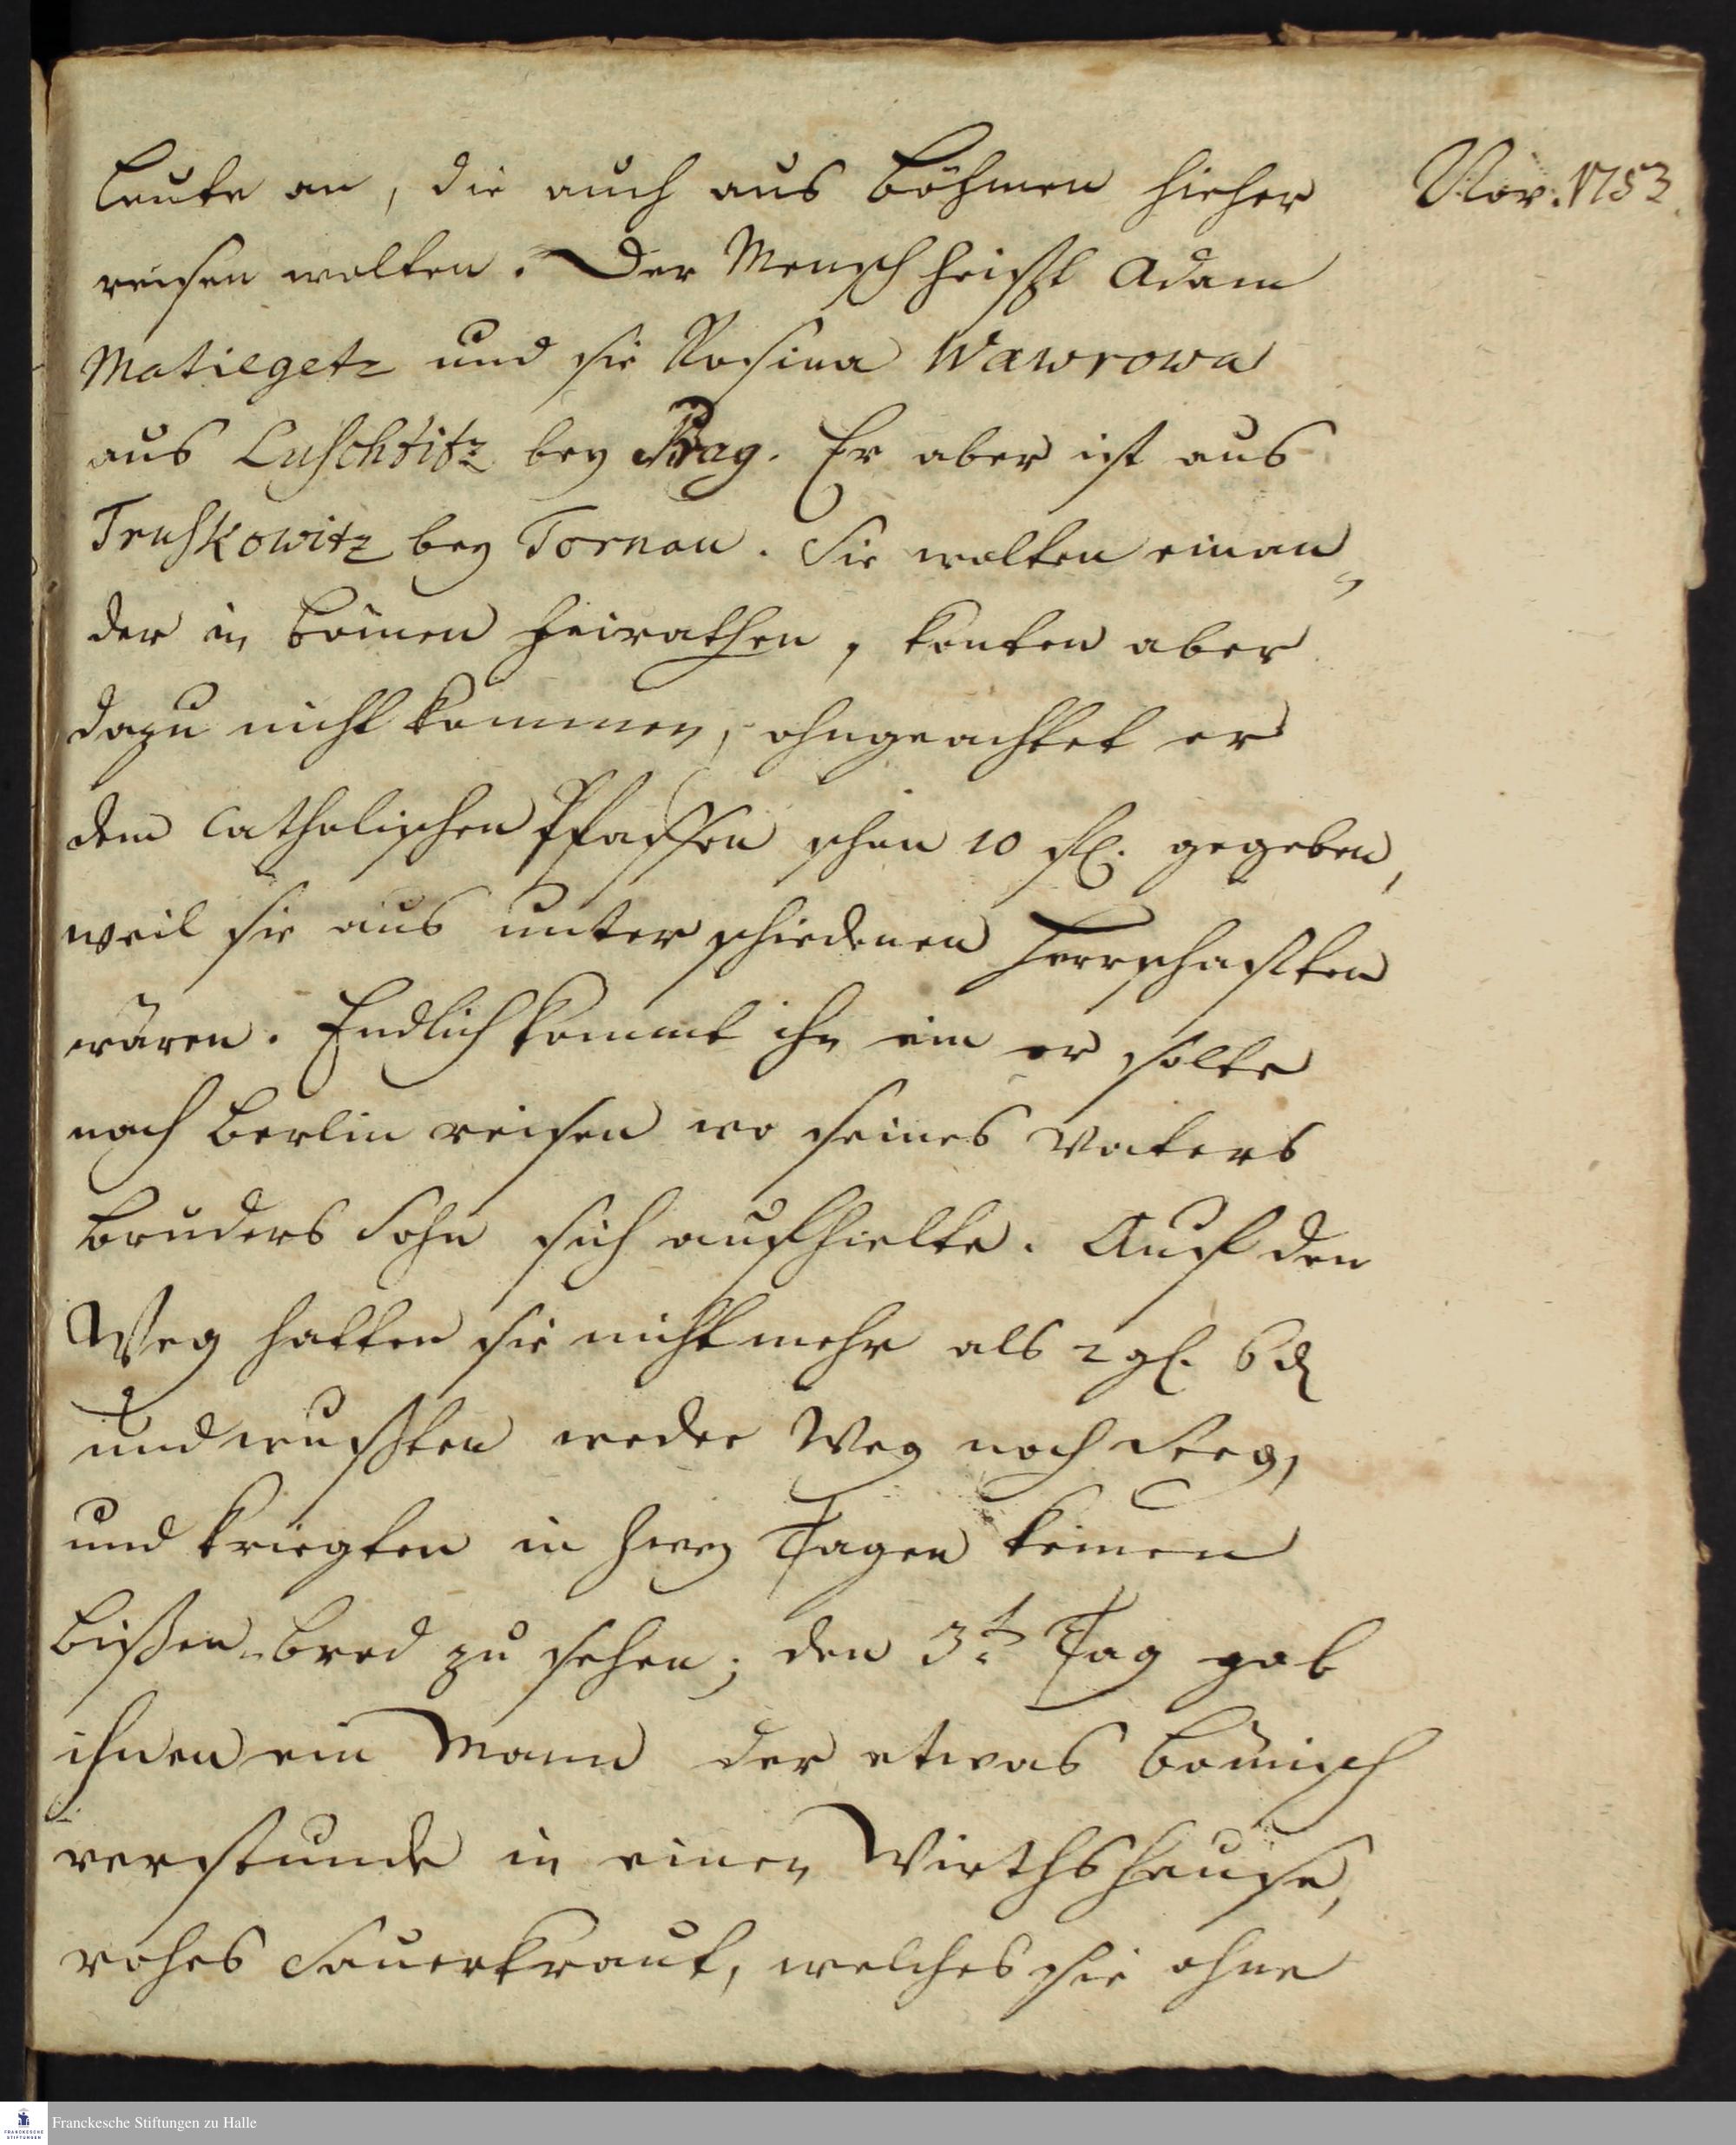 Leute an, die auch aus Böhmen hieher
Nov. 1753.
reisen wolten. Der Mensch heisst Adam
Matiegetz und sie Rosina Wawrowa
aus Luschtitz bey Prag. Er aber ist aus
Truskowitz bey Tornau. Sie wolten einan„
der in Böimen heirathen, konten aber
dazu nicht kommen, ohngeachtet er
dem Catholischen Pfaffen schon 10 fl. gegeben,
weil sie aus unterschiedenen Herrschafften
wären. Endlich kommt ihn ein er solte
nach Berlin reisen wo seines Vaters
Bruders Sohn sich aufhielte. Auf den
Weg hatten sie nicht mehr als 2 gl. 6 d
und wussten weder Weg noch Steg,
und kriegten in zwey Tagen keinen
Bißen Brod zu sehen; den 3t. Tag gab
ihnen ein Mann der etwas Böimisch
verstunde in einen Wirthshause,
rohes Sauerkraut, welches sie ohne
Franckesche Stiftungen zu Halle
FRANCKESCHE
STIFTUNGEN